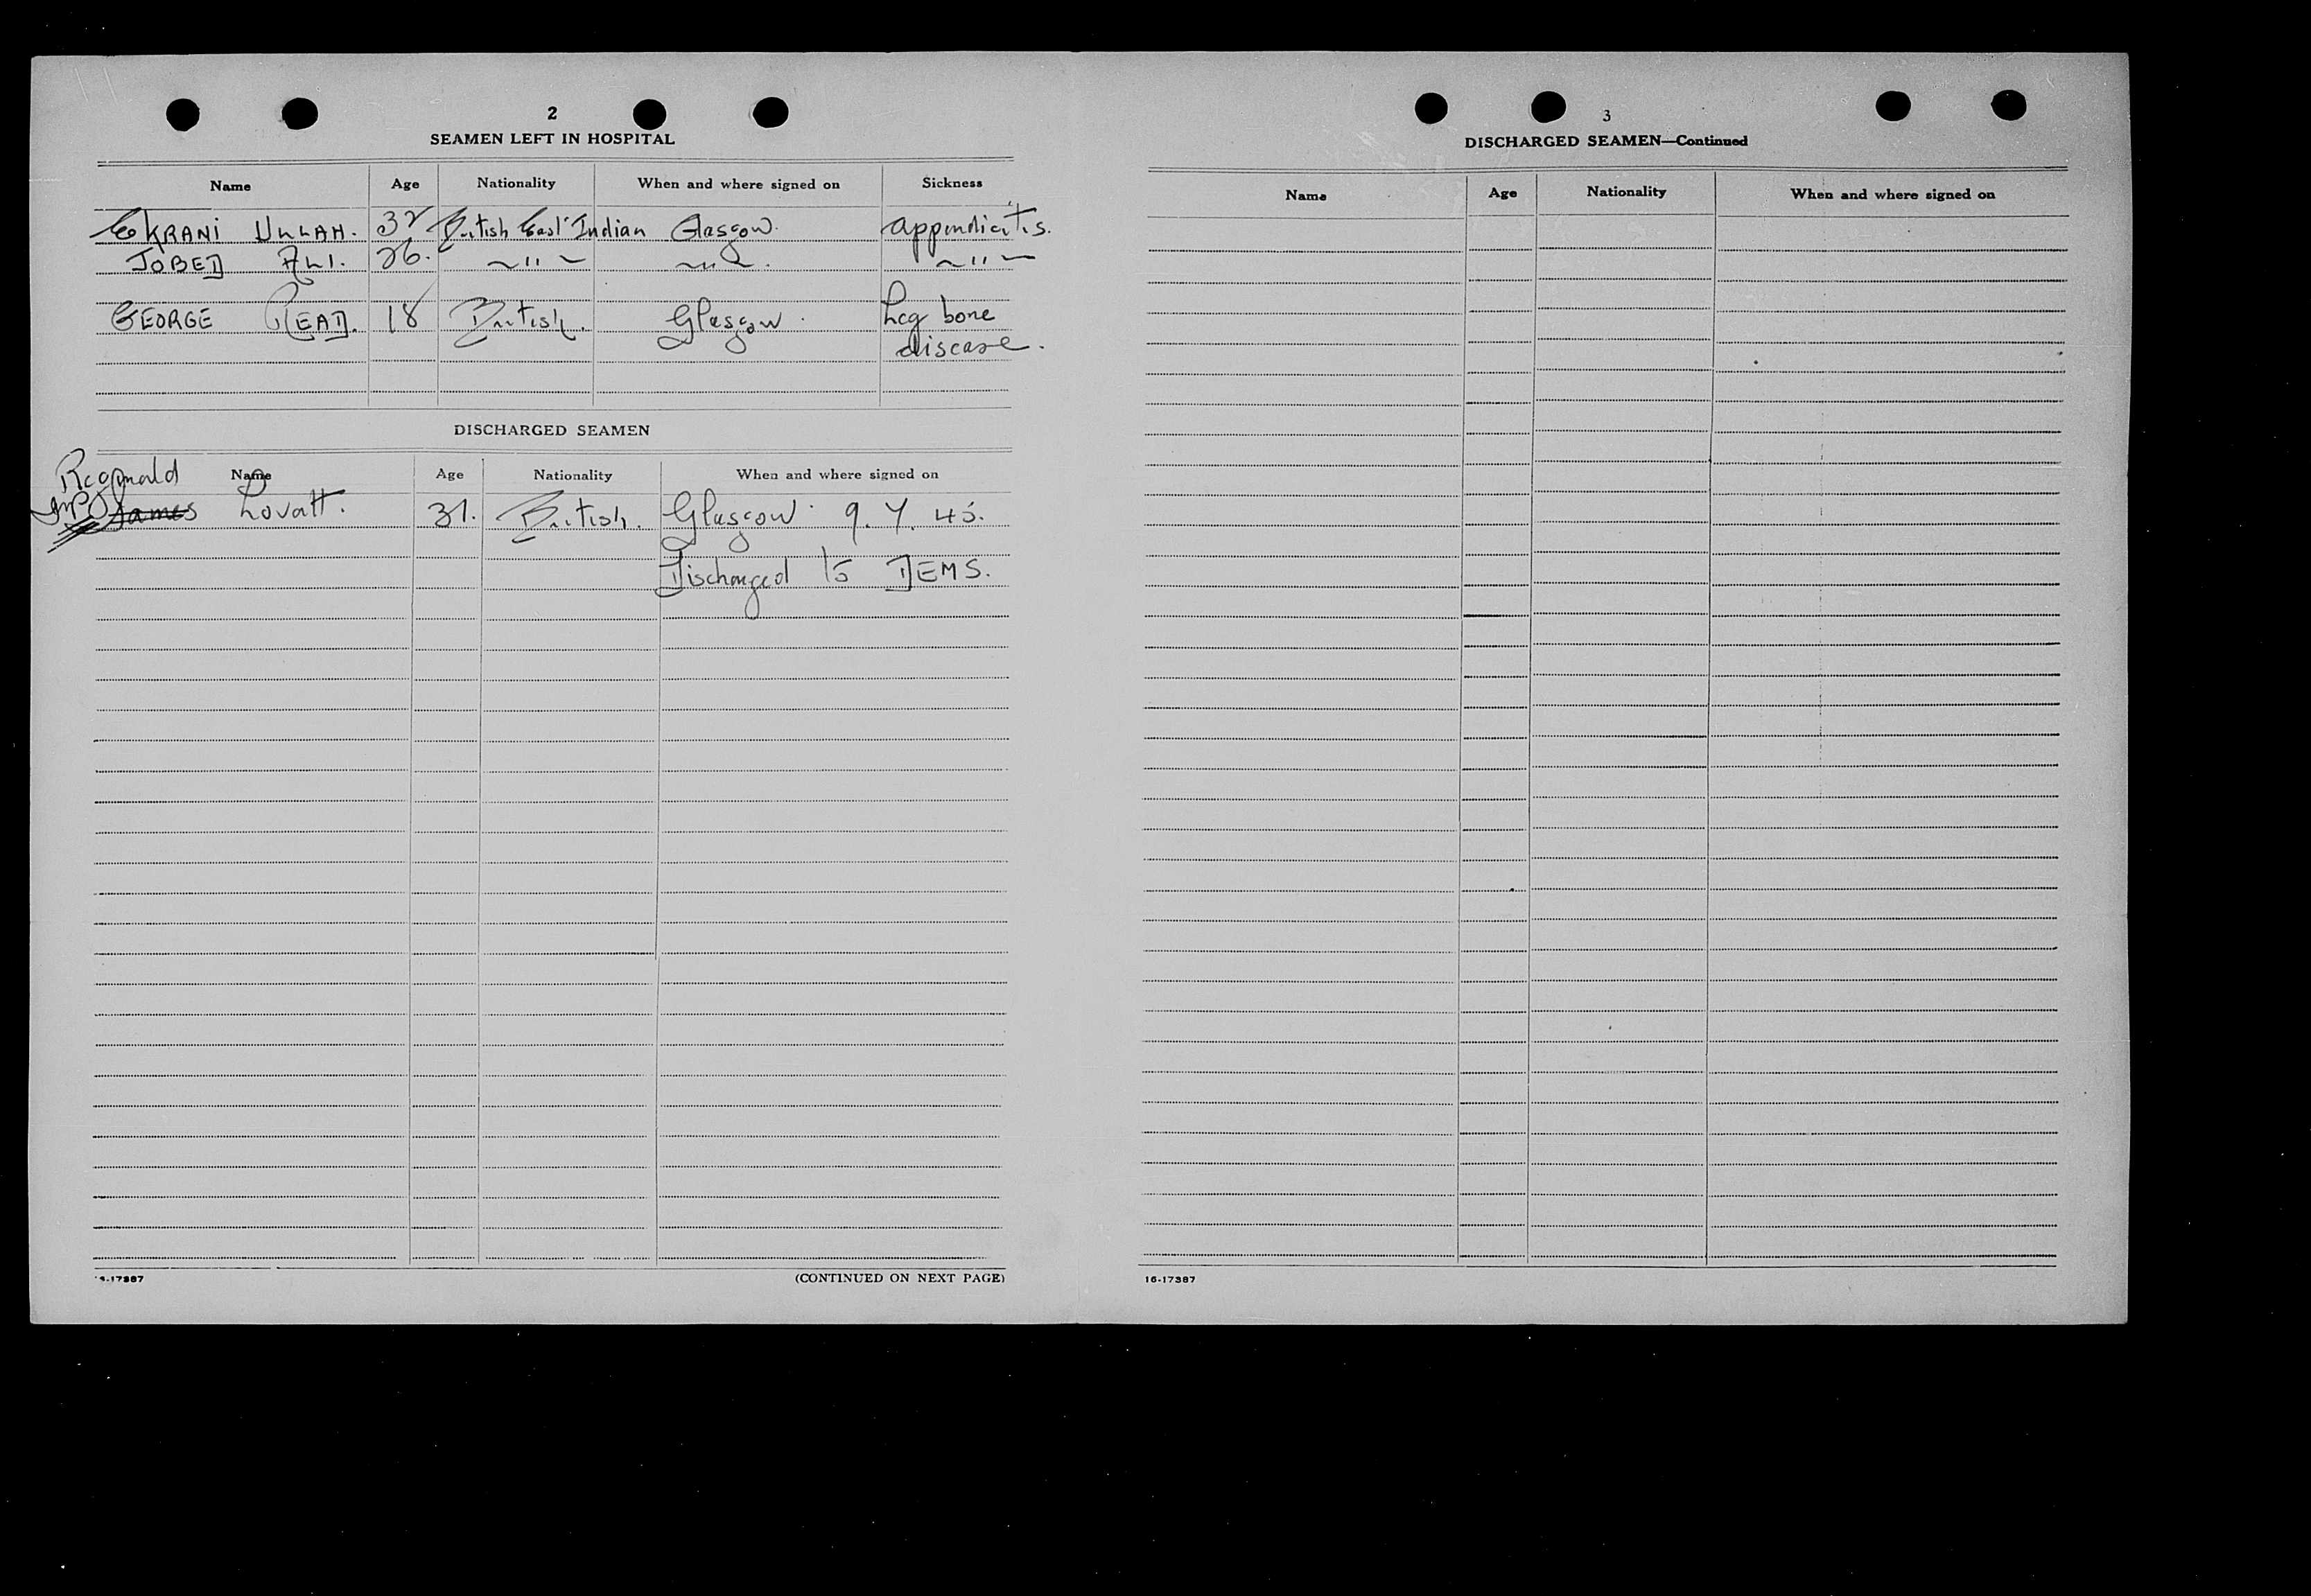 2
SEAMEN LEFT IN HOSPITAL
Name Age Nationality When and where signed on Sickness
EKRANI ULLAH. 32 British East Indian Glasgow. appendicitis.
JOBED ALI. 26. ~ " ~ ~ " ~. ~ " ~
GEORGE READ. 18 British. Glasgow. Leg bone
disease.
DISCHARGED SEAMEN
Reginald Name Age Nationality When and where signed on
James Lovatt. 31. British. Glasgow. 9. 7. 45.
Discharged to DEMS.
16-17387 (CONTINUED ON NEXT PAGE)
3
DISCHARGED SEAMEN—Continued
Name Age Nationality When and where signed on
16-17387